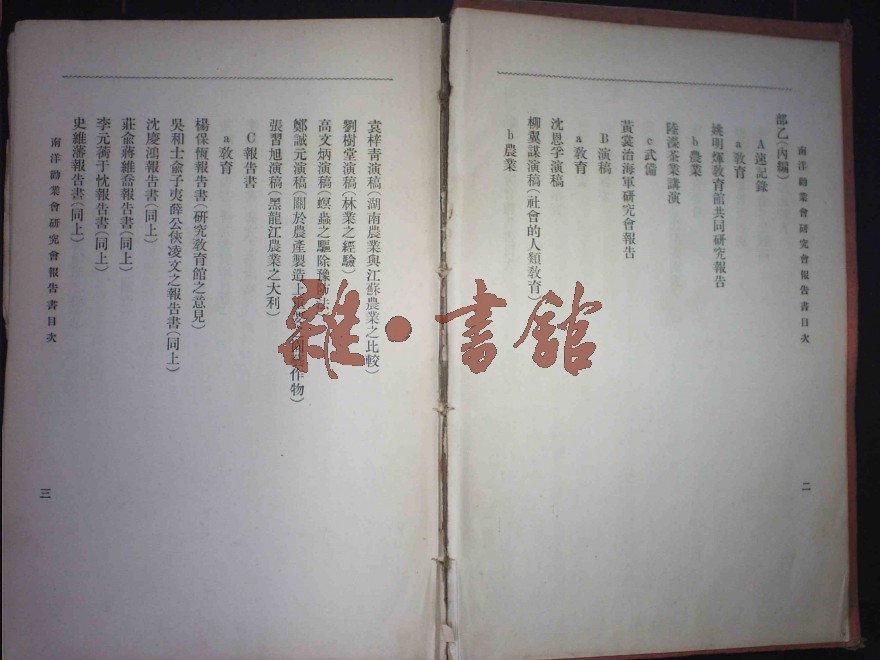 南洋勸業會研究會報告書目次
部乙(內編)
A速記錄
a教育
姚明煇教育館共同研究報告
b農業
陸溁茶業講演
c武備
黃裳治海軍研究會報告
B演稿
a教育
沈恩孚演稿
柳翼謀演稿(社會的人類教育)
b農業
二
袁梓青演稿(湖南農業與江蘇農業之比較)
劉樹堂演稿(林業之經驗)
高文炳演稿(螟蟲之驅除豫防法)
鄭誠元演稿(關於農產製造上 作物)
張習旭演稿(黑龍江農業之大利)
C報告書
a教育
楊保恆報告書(研究教育館之意見)
吳和士俞子夷薛公俠凌文之報告書(同上)
沈慶鴻報告書(同上)
莊俞蔣維喬報告書(同上)
李元蘅于忱報告書(同上)
史維藩報告書(同上)
南洋勸業會研究會報告書目次
三
雜·書館